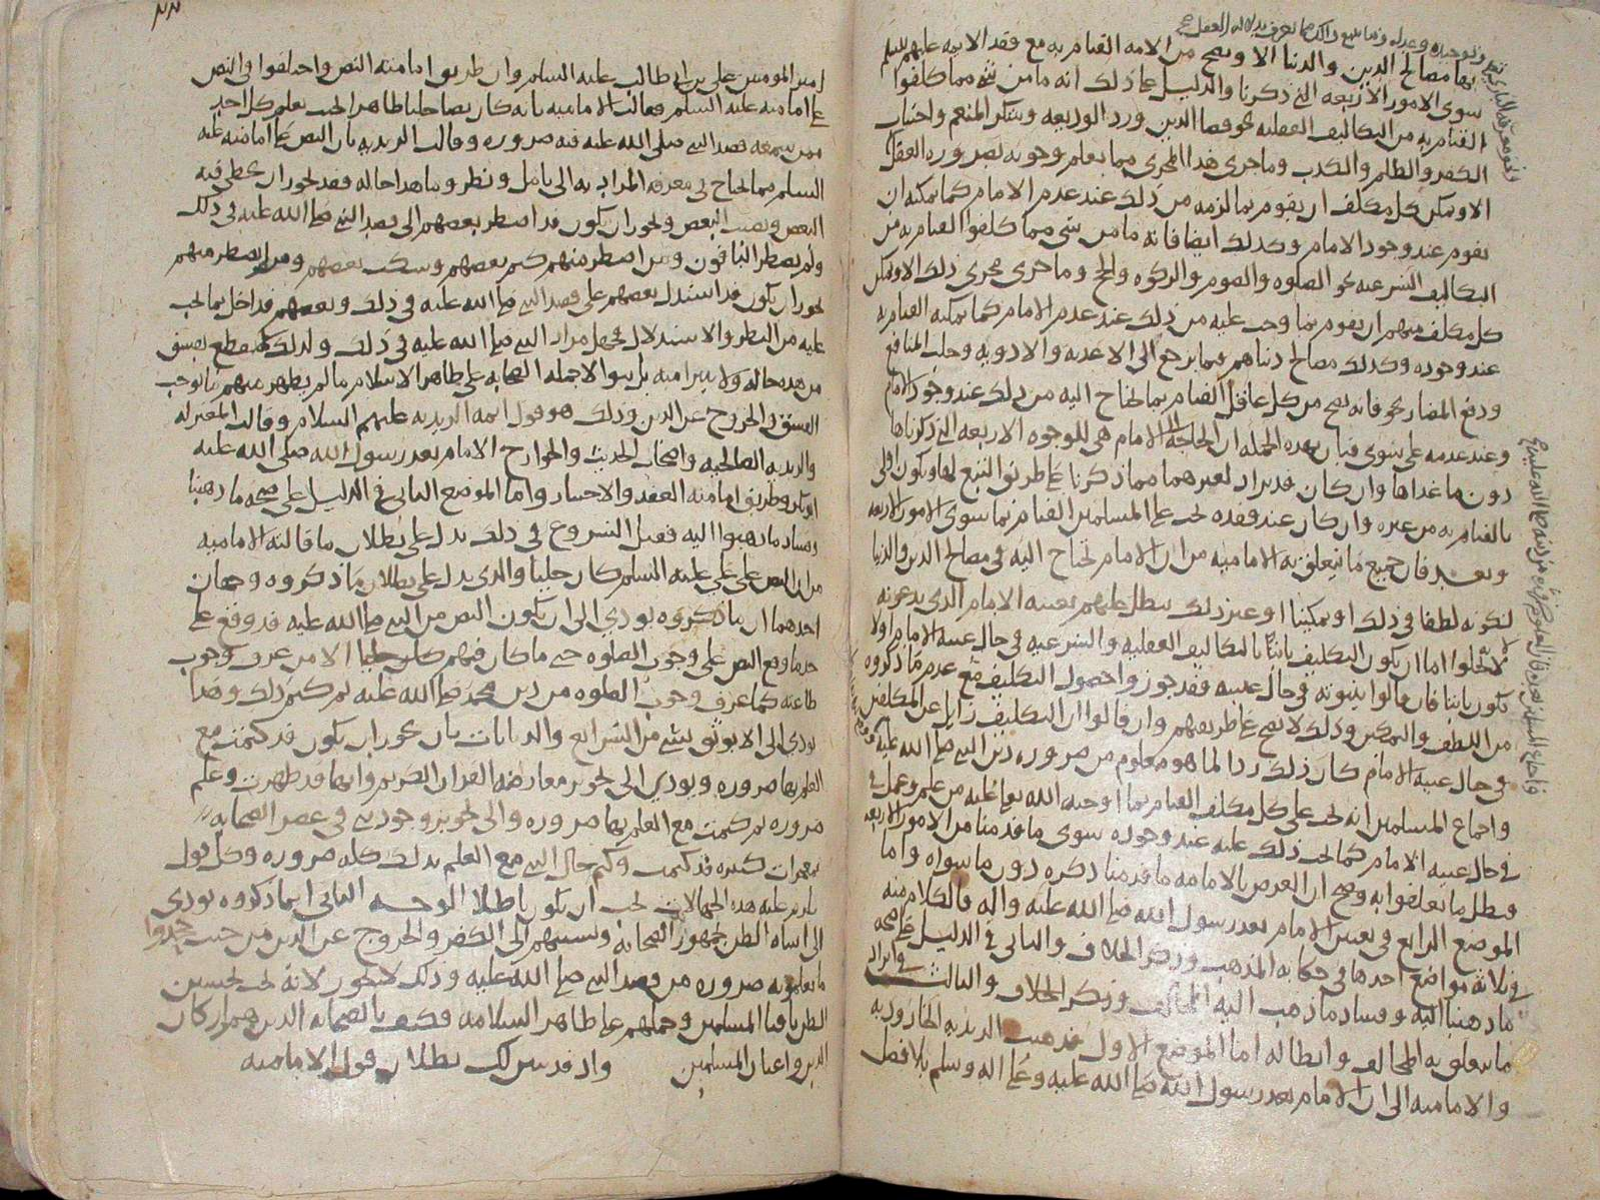 بها مصالح الدين والدنيا الا ويصح من الامه القيام به مع فقد الايمه عليهم السلم
سوى الامور الاربعه التي ذكرنا والدليل على ذلك انه ما من شي مما كلفوا
القيام به من التكاليف العقليه نحو قضا الدين ورد الوديعه وشكر المنعم واجتناب
الكفر والظلم والكذب وما جرى هذا المجرى مما يعلم وجوبه بضروره العقل
الا ويمكن كل مكلف ان يقوم بما لزمه من ذلك عند عدم الامام كما يمكنه ان
يقوم عند وجود الامام وكذلك ايضا فانه ما من شي مما كلفوا القيام به من
التكاليف الشرعيه نحو الصلوه والصوم والزكوه والحج وما جرى مجرى ذلك الا ويمكن
كل مكلف منهم ان يقوم بما وجب عليه من ذلك عند عدم الامام كما يمكنه القيام به
عند وجوده وكذلك مصالح دنياهم فيما يرجع الى الاغذيه والادويه وجلب المنافع
ودفع المضار نحو فانه يصح من كل عاقل القيام بما يحتاج اليه من ذلك عند وجود الامام
وعند عدمه على سوى فبان بهذه الجمله ان الحاجه الى الامام هي للوجوه الاربعه التي ذكرناها
دون ما عداها وان كان قد يراد لغيرها مما ذكرنا على طريق التبع لها ويكون اولى
بالقيام به من غيره وان كان عند فقده يجب على المسلمين القيام بما سوى الامور الاربعه
وبعد فان جميع ما يتعلق به الاماميه من ان الامام يحتاج اليه في مصالح الدين والدنيا
لكونه لطفا في ذلك او تمكينا او غير ذلك يبطل عليهم بغيبه الامام الذي يدعونه
لانه لا يخلوا اما ان يكون التكليف ثابتا بالتكاليف العقليه والشرعيه في حال غيبه الامام او لا
يكون ثابتا فان قالوا بثبوته في حال غيبته فقد جوزوا حصول التكليف مع عدم ما ذكروه
من اللطف والتمكين وذلك لا يصح على طريقهم وان قالوا ان التكليف زايل عن المكلفين
في حال غيبه الامام كان ذلك ردا لما هو معلوم من ضروره دين النبي صلى الله عليه
واجماع المسلمين انه يجب على كل مكلف القيام بما اوجبه الله تعالى عليه من علم وعمل في
في حال غيبه الامام كما يجب ذلك عليه عند وجوده سوى ما قدمنا من الامور الاربعه
فبطل ما تعلقوا به وصح ان الغرض بالامامه ما قدمنا ذكره دون ما سواه واما
الموضع الرابع في تعيين الامام بعد رسول الله صلى الله عليه واله فالكلام منه
في ثلاثه مواضع احدها في حكايه المذهب وذكر الخلاف والثاني في الدليل على صحه
ما ذهبنا اليه وفساد ما ذهب اليه المخالف وذكر الخلاف والثالث في ايراد
ما يتعلق به المخالف وابطاله اما الموضع الاول فذهبت الزيديه الجاروديه
والاماميه الى ان الامام بعد رسول الله صلى الله عليه وعلى اله وسلم بلا فصل
امير المومنين علي بن ابي طالب عليه السلم وان طريق امامته النص واختلفوا في النص
على امامته عليه السلم فقالت الاماميه بانه كان نصا جليا ظاهرا يجب يعلم كل احد
ممن سمعه قصد النبي صلى الله عليه فيه ضروره وقالت الزيديه بان النص على امامته عليه
السلم مما يحتاج في معرفه المراد به الى تامل ونظر وما هذا حاله فقد يجوز ان يخطي فيه
البعض ويصيب البعض ويجوز ان يكون قد اضطر بعضهم الى قصد النبي صلى الله عليه في ذلك
ولم يضطر الباقون ومن اضطر منهم كتم بعضهم وسكت بعضهم ومن لم يضطر منهم
يجوز ان يكون قد استدل بعضهم على قصد النبي صلى الله عليه في ذلك وبعضهم قد اخل بما يجب
عليه من النظر والاستدلال فجهل مراد النبي صلى الله عليه في ذلك ولذلك لم نقطع بفسق
من هذه حاله ولا نتبرا منه بل تبقوا لاجمله الصحابه على ظاهر الاسلام ما لم يظهر منهم ما يوجب
الفسق والخروج عن الدين وذلك هو قول ايمه الزيديه عليهم السلام وقالت المعتزله
والزيديه الصالحيه واصحاب الحديث والخوارج الامام بعد رسول الله صلى الله عليه
ابو بكر وطريق امامته العقد والاختيار واما الموضع الثاني في الدليل على صحه ما ذهبنا
وفساد ما ذهبوا اليه فقبل الشروع في ذلك ندل على بطلان ما قالته الاماميه
من ان النص على علي عليه السلم كان جليا والذي يدل على بطلان ما ذكروه وجهان
احدهما ان ما ذكروه يودي الى ان يكون النص من النبي صلى الله عليه قد وقع على
حد ما وقع النص على وجوب الصلوه حتى ما كان فيهم الا من عرف وجوب
طاعته كما عرف وجوب الصلوه من دين محمد صلى الله عليه ثم كتم ذلك وهذا
يودي الى الا يوثق بشي من الشرايع والديانات بان يجوز ان يكون قد كتمت مع
العلم بها ضروره ويودي الى تجويز معارضه القران الكريم وانها قد ظهرت وعلم
ضروره ثم كتمت مع العلم بها ضروره والى تجويز وجود نبي في عصر الصحابه
بمعجزات كثيره قد كتمت وكتم حال النبي مع العلم بذلك كله ضروره وكل قول
يلزم عليه هذه الجهالات يجب ان يكون باطلا الوجه الثاني ان ما ذكروه يودي
الى اساه الظن بجمهور الصحابه ونسبتهم الى الكفر والخروج عن الدين من حيث جحدوا
ما يعلمونه ضروره من قصد النبي صلى الله عليه وذلك لا يجوز لانه يجب تحسين
الظن باقيا المسلمين وحملهم على ظاهر السلامه فكيف بالصحابه الذين هم اركان
الدين واعيان المسلمين واذ قد تبين لك بطلان قول الاماميه